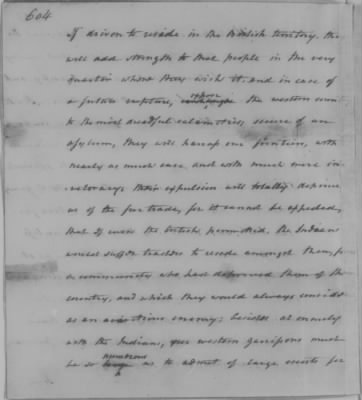 604
If driven to reside in the British territory, the
will add strength to that people in the very
quarter whose they wish it, and in case of
a future rupture, expose the western coun
to the most dreadful calamities; secure of an
asylum, they will harrass our frontiers, with
nearly as much ease and with much more in
veteracy: their expulsion will totally deprive
us of the fur trade, for it cannot be expected,
that if even the british permitted, the Indians
would suffer traders to reside amongst them, fr
a community who had deprived them of the
country, and which they would always consider
as an enemy; besides at enmity
with the Indians, your western garrisons must
be so numerous as to admit of large escorts for